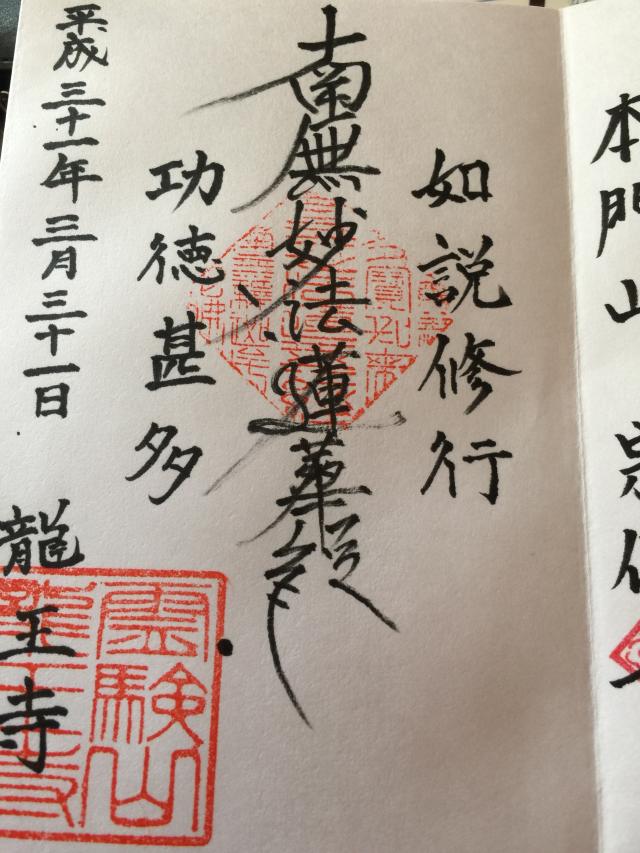 本門山
如説修行
南無妙法蓮華経
功徳甚多
平成三十一年三月三十一日
龍王寺
霊験山